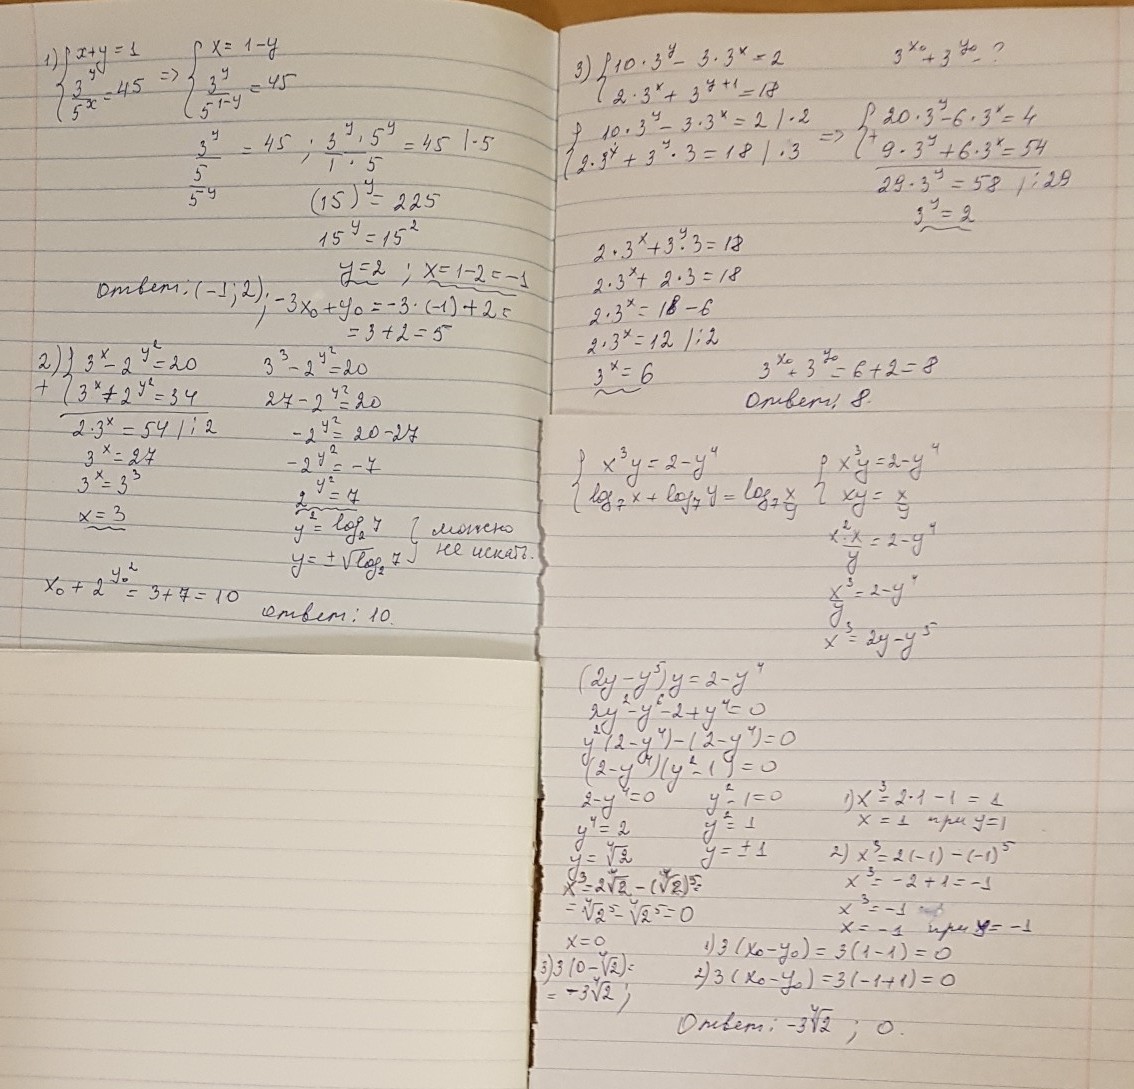 1) { x+y=1
{ 3^y/5^x = 45 => { x = 1-y
{ 3^y/5^(1-y) = 45
3^y/(5/5^y) = 45 ; (3^y · 5^y)/(1 · 5) = 45 |·5
(15)^y = 225
15^y = 15^2
y=2 ; x=1-2=-1
Ответ: (-1; 2) ; -3x₀+y₀ = -3·(-1)+2 =
= 3+2=5
2) { 3^x - 2^(y^2) = 20
+ { 3^x + 2^(y^2) = 34
2·3^x = 54 |:2
3^x = 27
3^x = 3^3
x=3
3^3 - 2^(y^2) = 20
27 - 2^(y^2) = 20
-2^(y^2) = 20-27
-2^(y^2) = -7
2^(y^2) = 7
y^2 = log₂7 } можно
y = ±√log₂7 } не искать.
x₀ + 2^(y₀^2) = 3+7=10
Ответ: 10.
3) { 10·3^y - 3·3^x = 2
{ 2·3^x + 3^(y+1) = 18
3^(x₀) + 3^(y₀) - ?
{ 10·3^y - 3·3^x = 2 |·2
{ 2·3^x + 3^y·3 = 18 |·3
=> { 20·3^y - 6·3^x = 4
+ { 9·3^y + 6·3^x = 54
29·3^y = 58 |:29
3^y = 2
2·3^x + 3^y·3 = 18
2·3^x + 2·3 = 18
2·3^x = 18-6
2·3^x = 12 |:2
3^x = 6
3^(x₀) + 3^(y₀) = 6+2=8
Ответ: 8.
{ x^3y = 2-y^4
{ log₇x + log₇y = log₇ x/y
{ x^3y = 2-y^4
{ xy = x/y
(x^2·x)/y = 2-y^4
x^3/y = 2-y^4
x^3 = 2y-y^5
(2y-y^5)y = 2-y^4
2y^2-y^6-2+y^4=0
y^2(2-y^4)-(2-y^4)=0
(2-y^4)(y^2-1)=0
2-y^4=0
y^4=2
y=⁴√2
x^3=2⁴√2-(⁴√2)^5=
=⁴√2^5-⁴√2^5=0
x=0
3) 3(0-⁴√2)=
= -3⁴√2 ;
y^2-1=0
y^2=1
y=±1
1) x^3=2·1-1=1
x=1 при y=1
2) x^3=2(-1)-(-1)^5
x^3=-2+1=-1
x^3=-1
x=-1 при y=-1
1) 3(x₀-y₀)=3(1-1)=0
2) 3(x₀-y₀)=3(-1+1)=0
Ответ: -3⁴√2 ; 0.